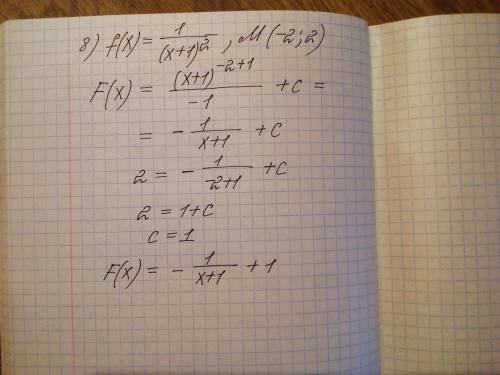 8) f(x) = 1/(x+1)^2 , M(-2;2)
F(x) = (x+1)^(-2+1)/-1 + c =
= - 1/(x+1) + c
2 = - 1/(-2+1) + c
2 = 1 + c
c = 1
F(x) = - 1/(x+1) + 1